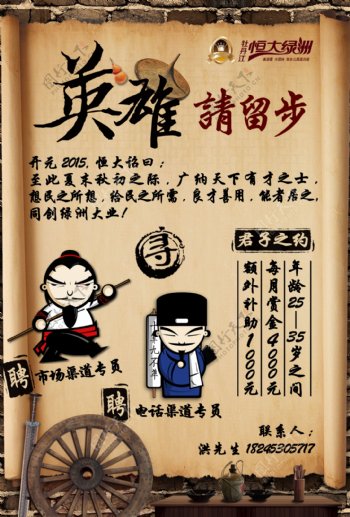 牡丹江
恒大绿洲
英雄
請留步
开元2015,恒大诏曰:
至此夏末秋初之际,广纳天下有才之士,
想民之所想,给民之所需,良才善用,能者居之,
同创绿洲大业!
寻
君子之约
年龄25—35岁之间
每月赏金4000元
额外补助1000元
聘
市场渠道专员
聘
电话渠道专员
联系人:
洪先生 18245305717